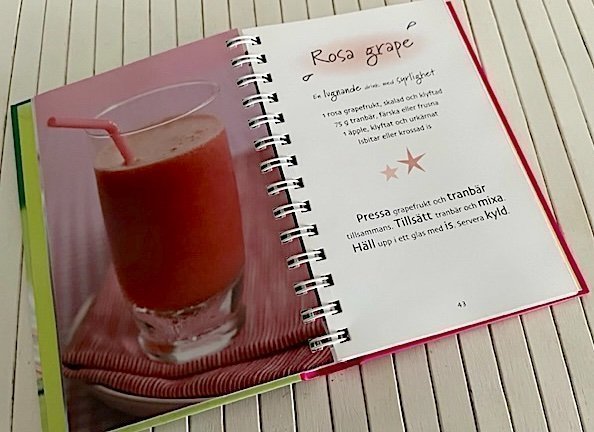 Rosa grape
En lugnande drink med syrlighet
1 rosa grapefrukt, skalad och klyftad
75 g tranbär, färska eller frusna
1 äpple, klyftat och urkärnat
Isbitar eller krossad is
Pressa grapefrukt och tranbär
tillsammans. Tillsätt tranbär och mixa.
Häll upp i ett glas med is. Servera kyld.
43